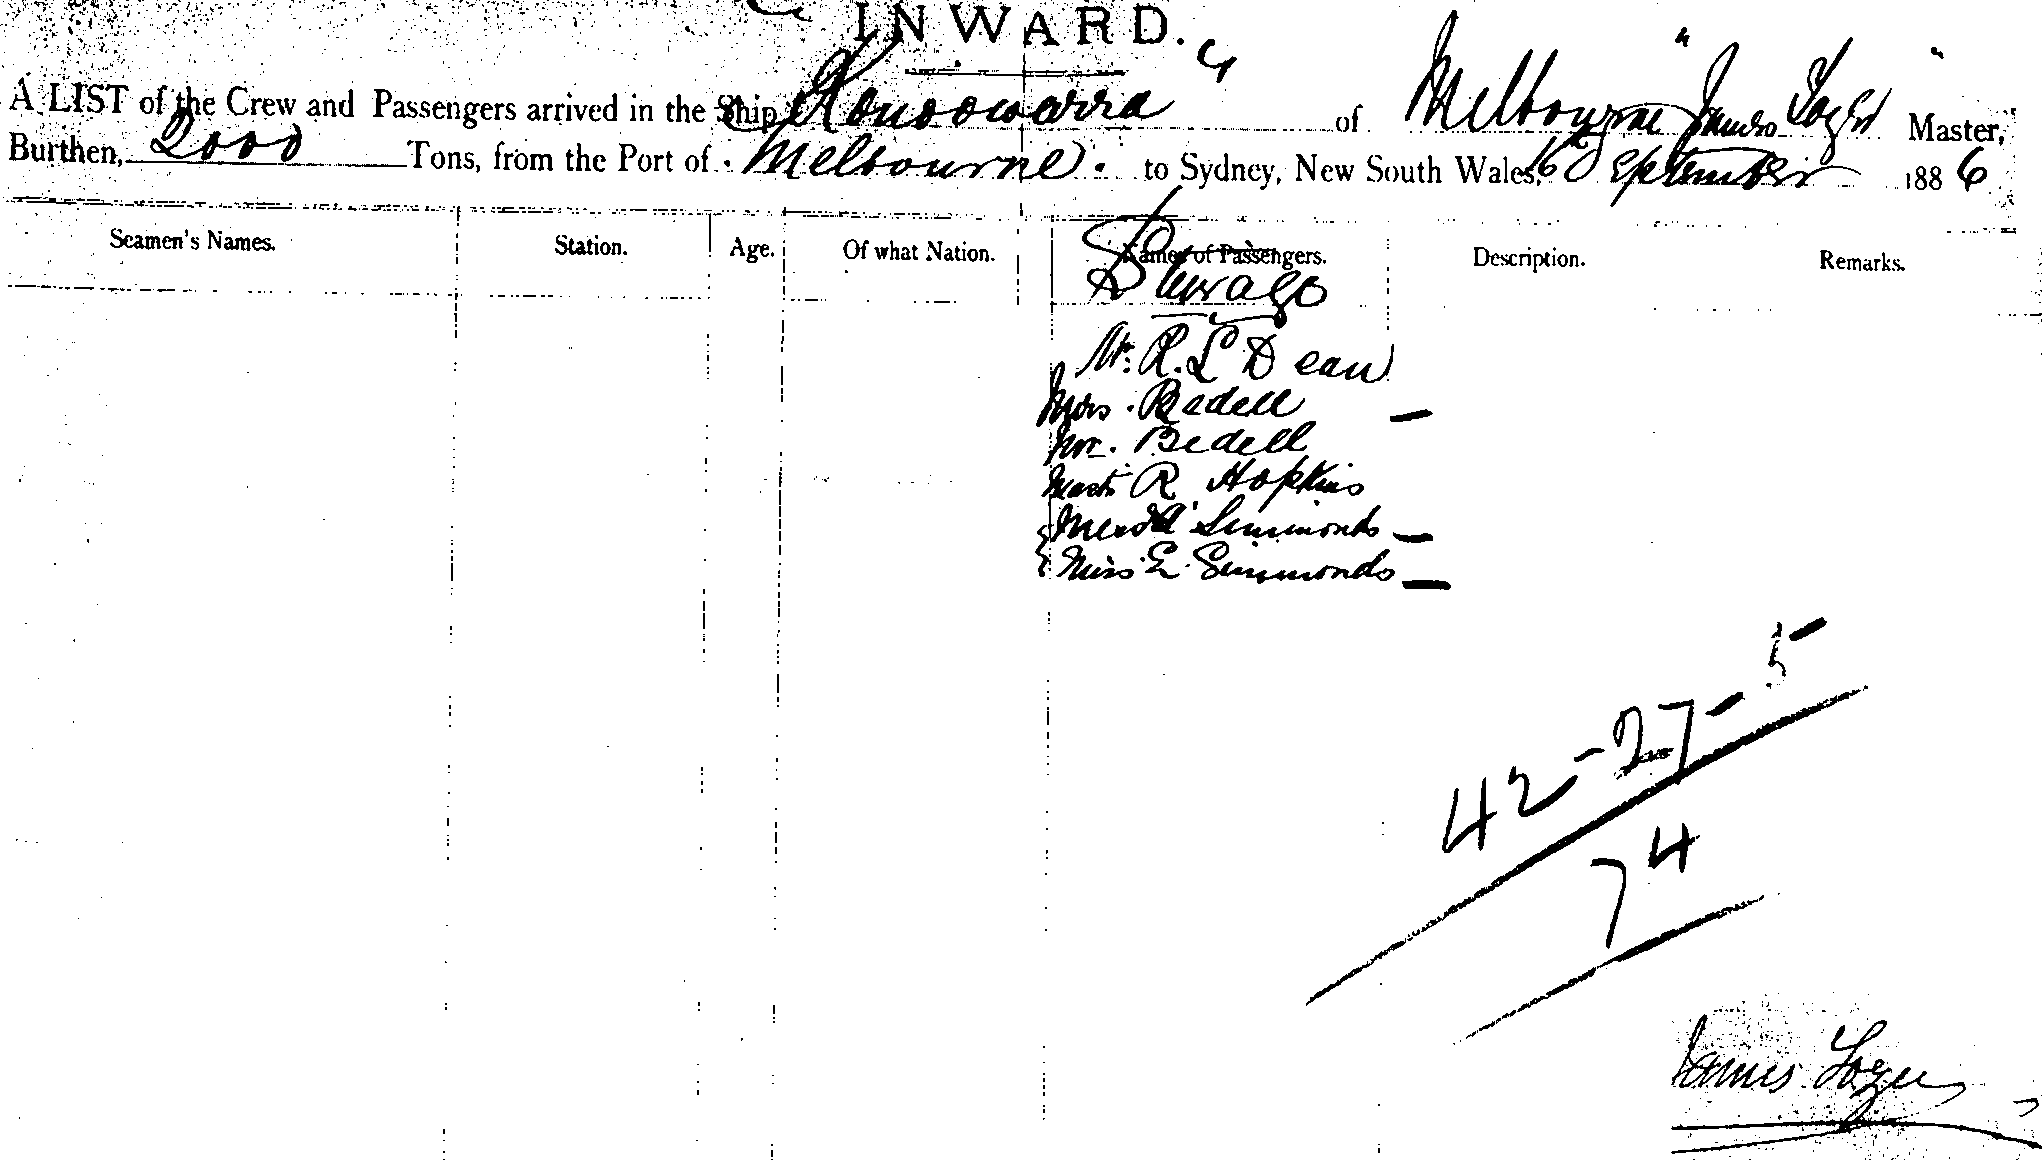 INWARD.
A LIST of the Crew and Passengers arrived in the Ship Konoowarra of Melbourne James Lozer Master,
Burthen, 2000 Tons, from the Port of Melbourne. to Sydney, New South Wales, 16 September 1886
Seamen's Names. Station. Age. Of what Nation. Names of Passengers. Description. Remarks.
Steerage
Mr. R. L Dean
Mrs. Bedell
Mr. Bedell
Mast R Hopkins
Simmonds
Miss E. Simmonds
42-27-5
74
James Lozer